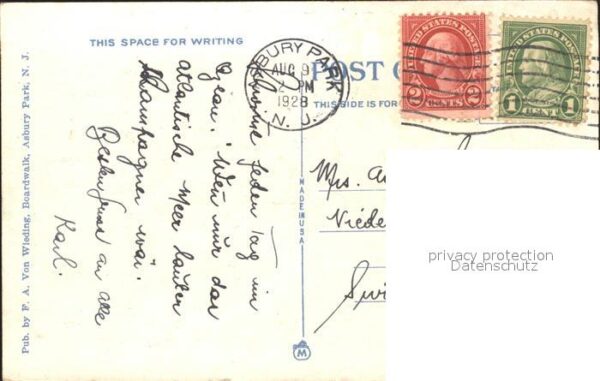 THIS SPACE FOR WRITING
Pub. by F. A. Von Wieding, Boardwalk, Asbury Park, N. J.
Schwimme jeden Tag im
Ozean. Wenn nur das
Atlantische Meer lauter
Champagner wär.
Bestengruss an alle
Karl.
ASBURY PARK
AUG 9
2 PM
1928
N. J.
POST C
THIS SIDE IS FOR
UNITED STATES POSTAGE
2 CENTS 2
UNITED STATES POSTAGE
1 CENT 1
MADE IN USA
M
Mrs. A
Niede
Swi
privacy protection
Datenschutz